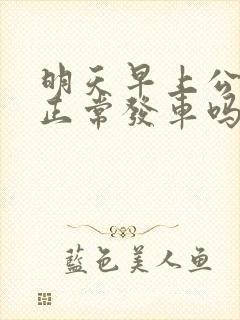 明天早上公
正常發車嗎
藍色美人鱼